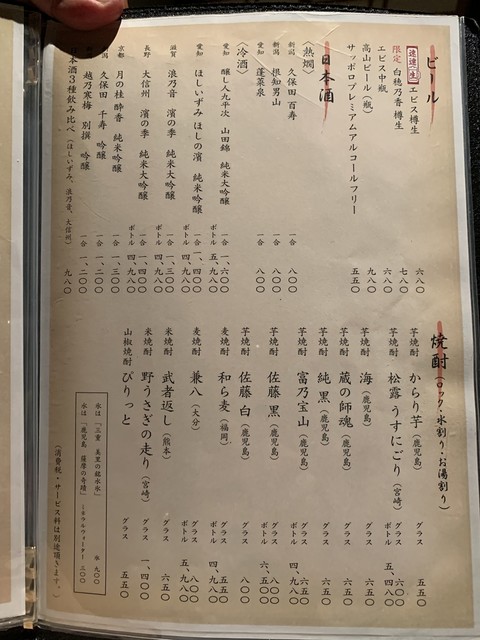 ビール
速達生 エビス樽生 六八〇
限定 白穂乃香 樽生 七八〇
エビス中瓶 六八〇
高山ビール(瓶) 九八〇
サッポロプレミアムアルコールフリー 五五〇
日本酒
(熱燗)
新潟 久保田 百寿 一合 八〇〇
新潟 根知男山 一合 八〇〇
愛知 蓬莱泉 一合 八〇〇
(冷酒)
愛知 醸し人九平次 山田錦 純米大吟醸 一合 一、六〇〇
ボトル 五、九八〇
愛知 ほしいずみ ほしの濱 純米吟醸 一合 一、四〇〇
ボトル 四、九八〇
滋賀 浪乃音 濱の季 純米大吟醸 一合 一、三〇〇
ボトル 四、九八〇
長野 大信州 濱の季 純米大吟醸 一合 一、四〇〇
ボトル 四、九八〇
京都 月の桂 酔香 純米吟醸 一合 一、三〇〇
久保田 千寿 吟醸 一合 一、二〇〇
越乃寒梅 別撰 吟醸 一合 一、二〇〇
日本酒3種飲み比べ (ほしいずみ、浪乃音、大信州) 九八〇
焼酎(ロック・水割り・お湯割り)
芋焼酎 からり芋(鹿児島) グラス 五五〇
芋焼酎 松露 うすにごり(宮崎) グラス 六〇〇
ボトル 五、四八〇
芋焼酎 海(鹿児島) グラス 六五〇
芋焼酎 蔵の師魂(鹿児島) グラス 六五〇
芋焼酎 純黒(鹿児島) グラス 六五〇
芋焼酎 富乃宝山(鹿児島) グラス 六五〇
ボトル 四、九八〇
芋焼酎 佐藤 黒(鹿児島) グラス 八〇〇
ボトル 六、五〇〇
芋焼酎 佐藤 白(鹿児島) グラス 八〇〇
麦焼酎 和ら麦(福岡) グラス 五五〇
ボトル 四、九八〇
麦焼酎 兼八(大分) グラス 八〇〇
ボトル 五、九八〇
米焼酎 武者返し(熊本) グラス 六五〇
米焼酎 野うさぎの走り(宮崎) グラス 一、四〇〇
山椒焼酎 ぴりっと グラス 五五〇
氷は「三重 美里の銘水氷」 氷 九〇〇
水は「鹿児島 薩摩の奇蹟」 ミネラルウォーター 三〇〇
(消費税・サービス料は別途頂きます。)